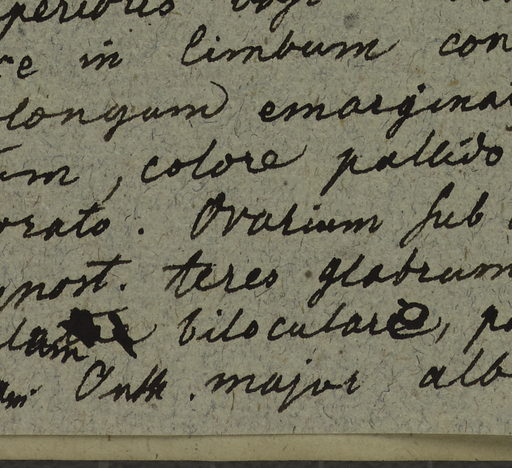 perioris
re in limbum con
longum emargina
um, colore pallido
orato. Ovarium sub
gnost. teres glabrum
biloculare, p
Anth. major alb